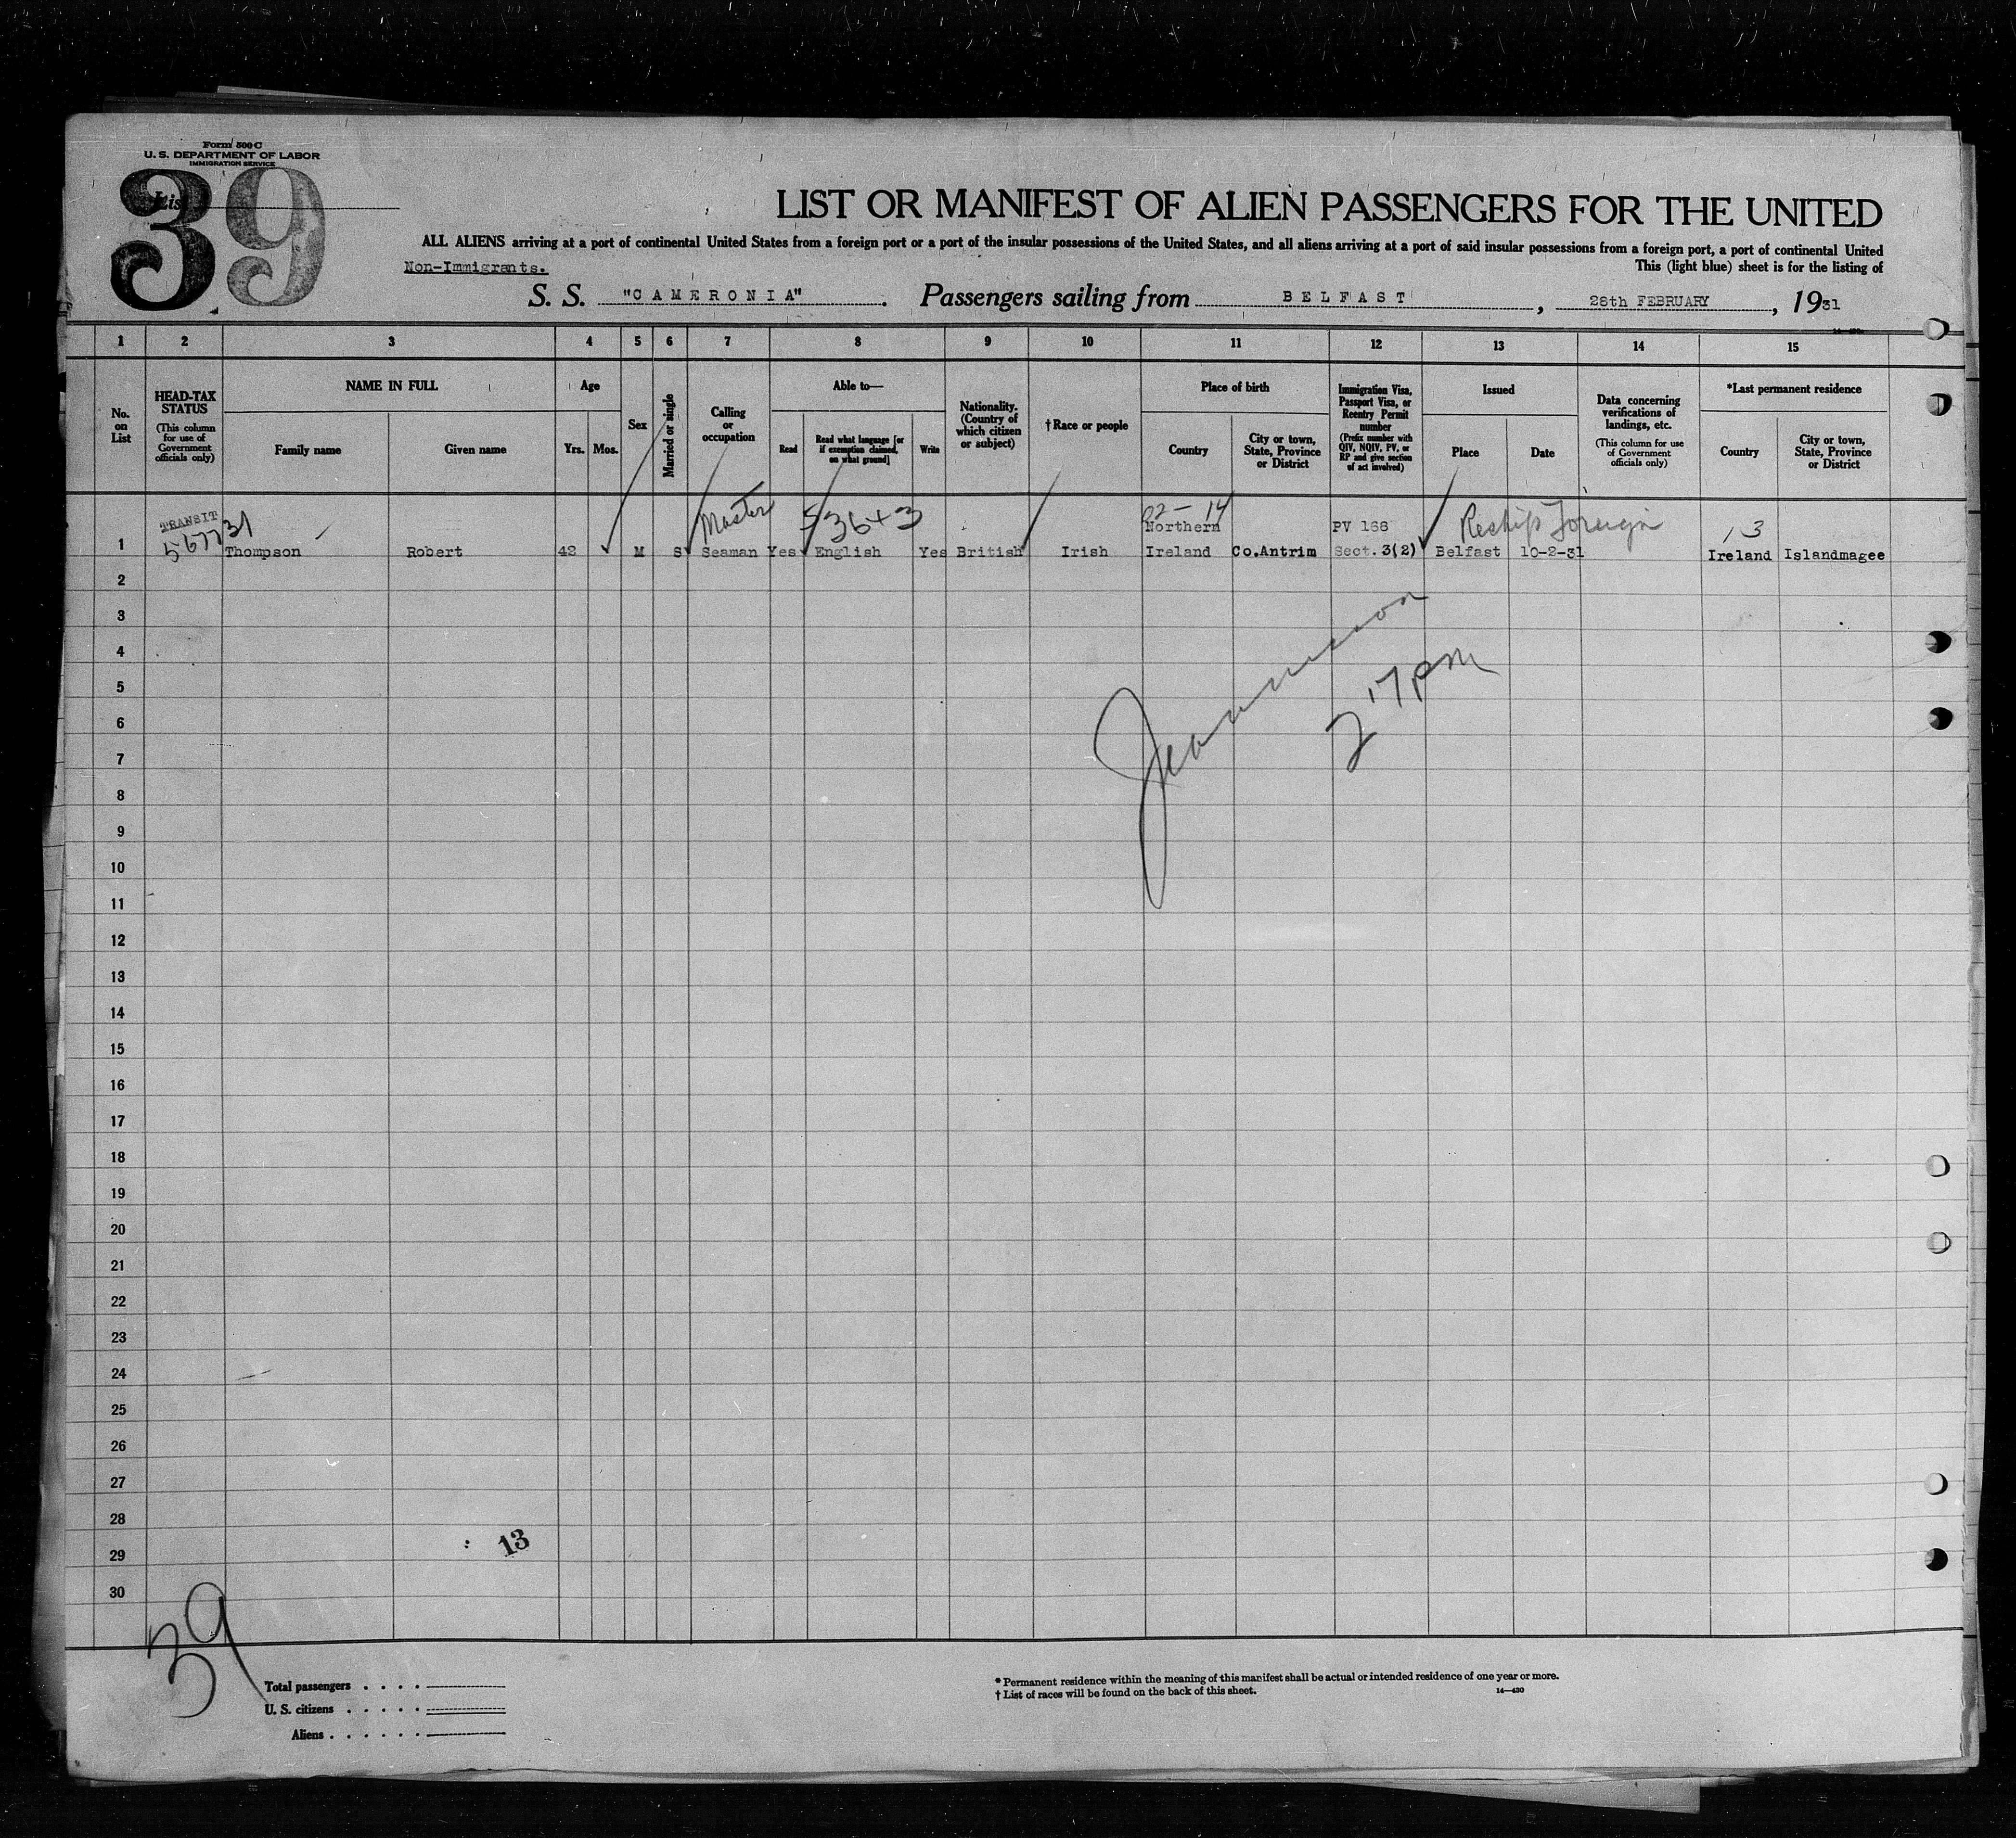 Form 500 C
U. S. DEPARTMENT OF LABOR
IMMIGRATION SERVICE
List
39
LIST OR MANIFEST OF ALIEN PASSENGERS FOR THE UNITED
ALL ALIENS arriving at a port of continental United States from a foreign port or a port of the insular possessions of the United States, and all aliens arriving at a port of said insular possessions from a foreign port, a port of continental United
Non-Immigrants.
This (light blue) sheet is for the listing of
S. S. "CAMERONIA". Passengers sailing from BELFAST, 28th FEBRUARY, 1931
1 2 3 4 5 6 7 8 9 10 11 12 13 14 15
No. on List
HEAD-TAX STATUS
(This column for use of Government officials only)
NAME IN FULL
Family name
Given name
Age
Yrs. Mos.
Sex
Married or single
Calling or occupation
Able to—
Read
Read what language [or if exemption claimed, on what ground]
Write
Nationality. (Country of which citizen or subject)
†Race or people
Place of birth
Country
City or town, State, Province or District
Immigration Visa, Passport Visa, or Reentry Permit number
(Prefix number with QIV, NQIV, PV, or RP and give section of act involved)
Issued
Place
Date
Data concerning verifications of landings, etc.
(This column for use of Government officials only)
*Last permanent residence
Country
City or town, State, Province or District
TRANSIT Master 536+3 02-14 Northern PV 168 Reship Foreign 13
1 Thompson Robert 42 M S Seaman Yes English Yes British Irish Ireland Co.Antrim Sect.3(2) Belfast 10-2-31 Ireland Islandmagee
2
3
4
5
6
7
2 17 pm
8
9
10
11
12
13
14
15
16
17
18
19
20
21
22
23
24
25
26
27
28
13
29
30
39
Total passengers
U. S. citizens
Aliens
* Permanent residence within the meaning of this manifest shall be actual or intended residence of one year or more.
† List of races will be found on the back of this sheet.
14—430